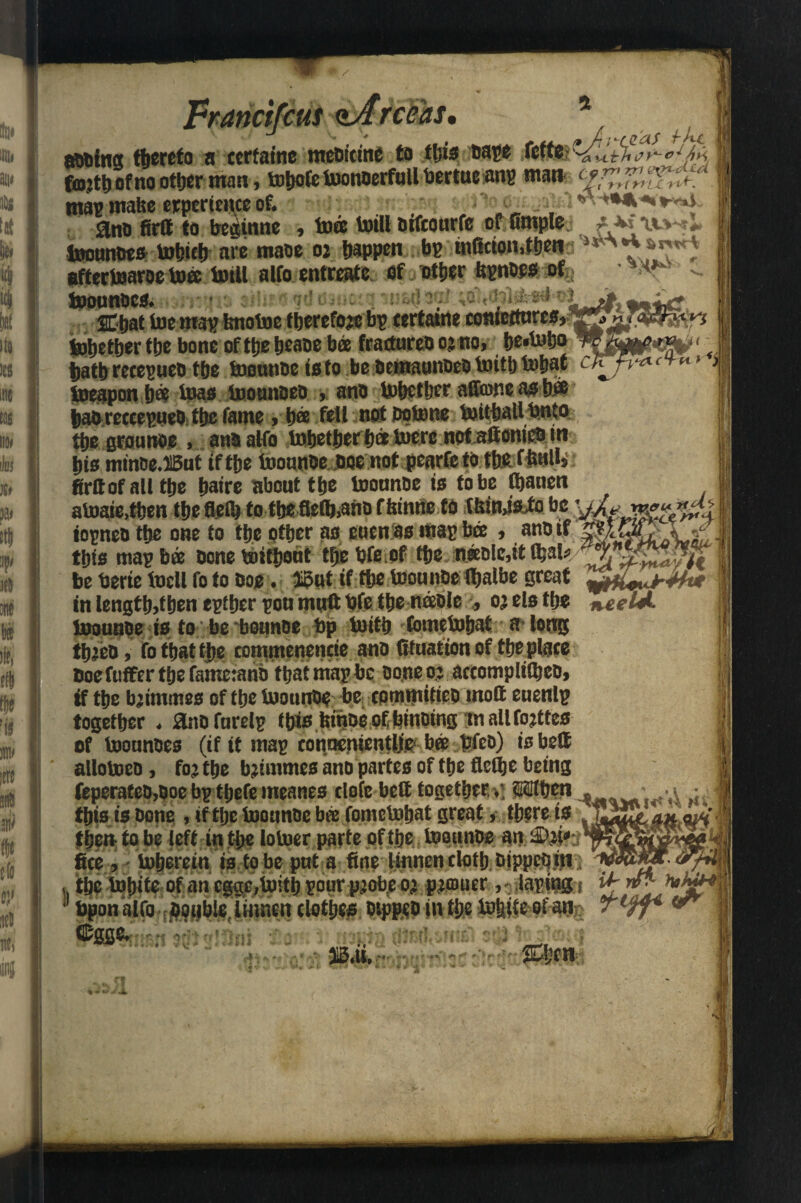 Franciscus Arceus.
2
adding thereto a certaine medicine to this daye sette
foorth of no other man, whose wonderfull vertue any man
may make experience of.
And first to beginne, wée will discourse of simple
woundes which are made or happen by inscicion, then
afterwarde wée will also entreate of other kyndes of
woundes.
That we may knowe therefore by certaine coniectures,
whether the bone of the heade bée fractured or no, he, who
hath receyued the wounde is to be demaunded with what
weapon hée was wounded, and whether assoone as hée
had recceyued the same, hée fell not downe withall vnto
the grounde, and also whether hée were not astonied in
his minde. But if the wounde doe not pearse to the skull,
first of all the haire about the wounde is to be shauen
awaie, then the flesh to the flesh, and skinne to skin, is to be
ioyned the one to the other as euen as may bée, and if
this may bée done without the vse of the néedle, it shal-
be verie well so to doe. But if the wounde shalbe great
in length, then eyther you must vse the néedle, or els the
wounde is to be bounde vp with somewhat a long
thred, so that the commenencie and situation of the place
doe suffer the same: and that may be done or accomplished,
if the brimmes of the wounde be committed most euenly
together. And surely this kinde of binding in all sorttes
of woundes (if it may conuenientlie bée vsed) is best
allowed, for the brimmes and partes of the fleshe being
seperated, doe by these meanes close best together. When
this is done, if the wounde bée somewhat great, there is
then to be left in the lower parte of the wounde an Ori-
fice, wherein is to be put a fine linnen cloth dipped in
the white of an egge, with your probe or proouer, laying
vpon also double linnen clothes dipped in the white of an
Egge.
B.ii.
Then
Arceas the
needl